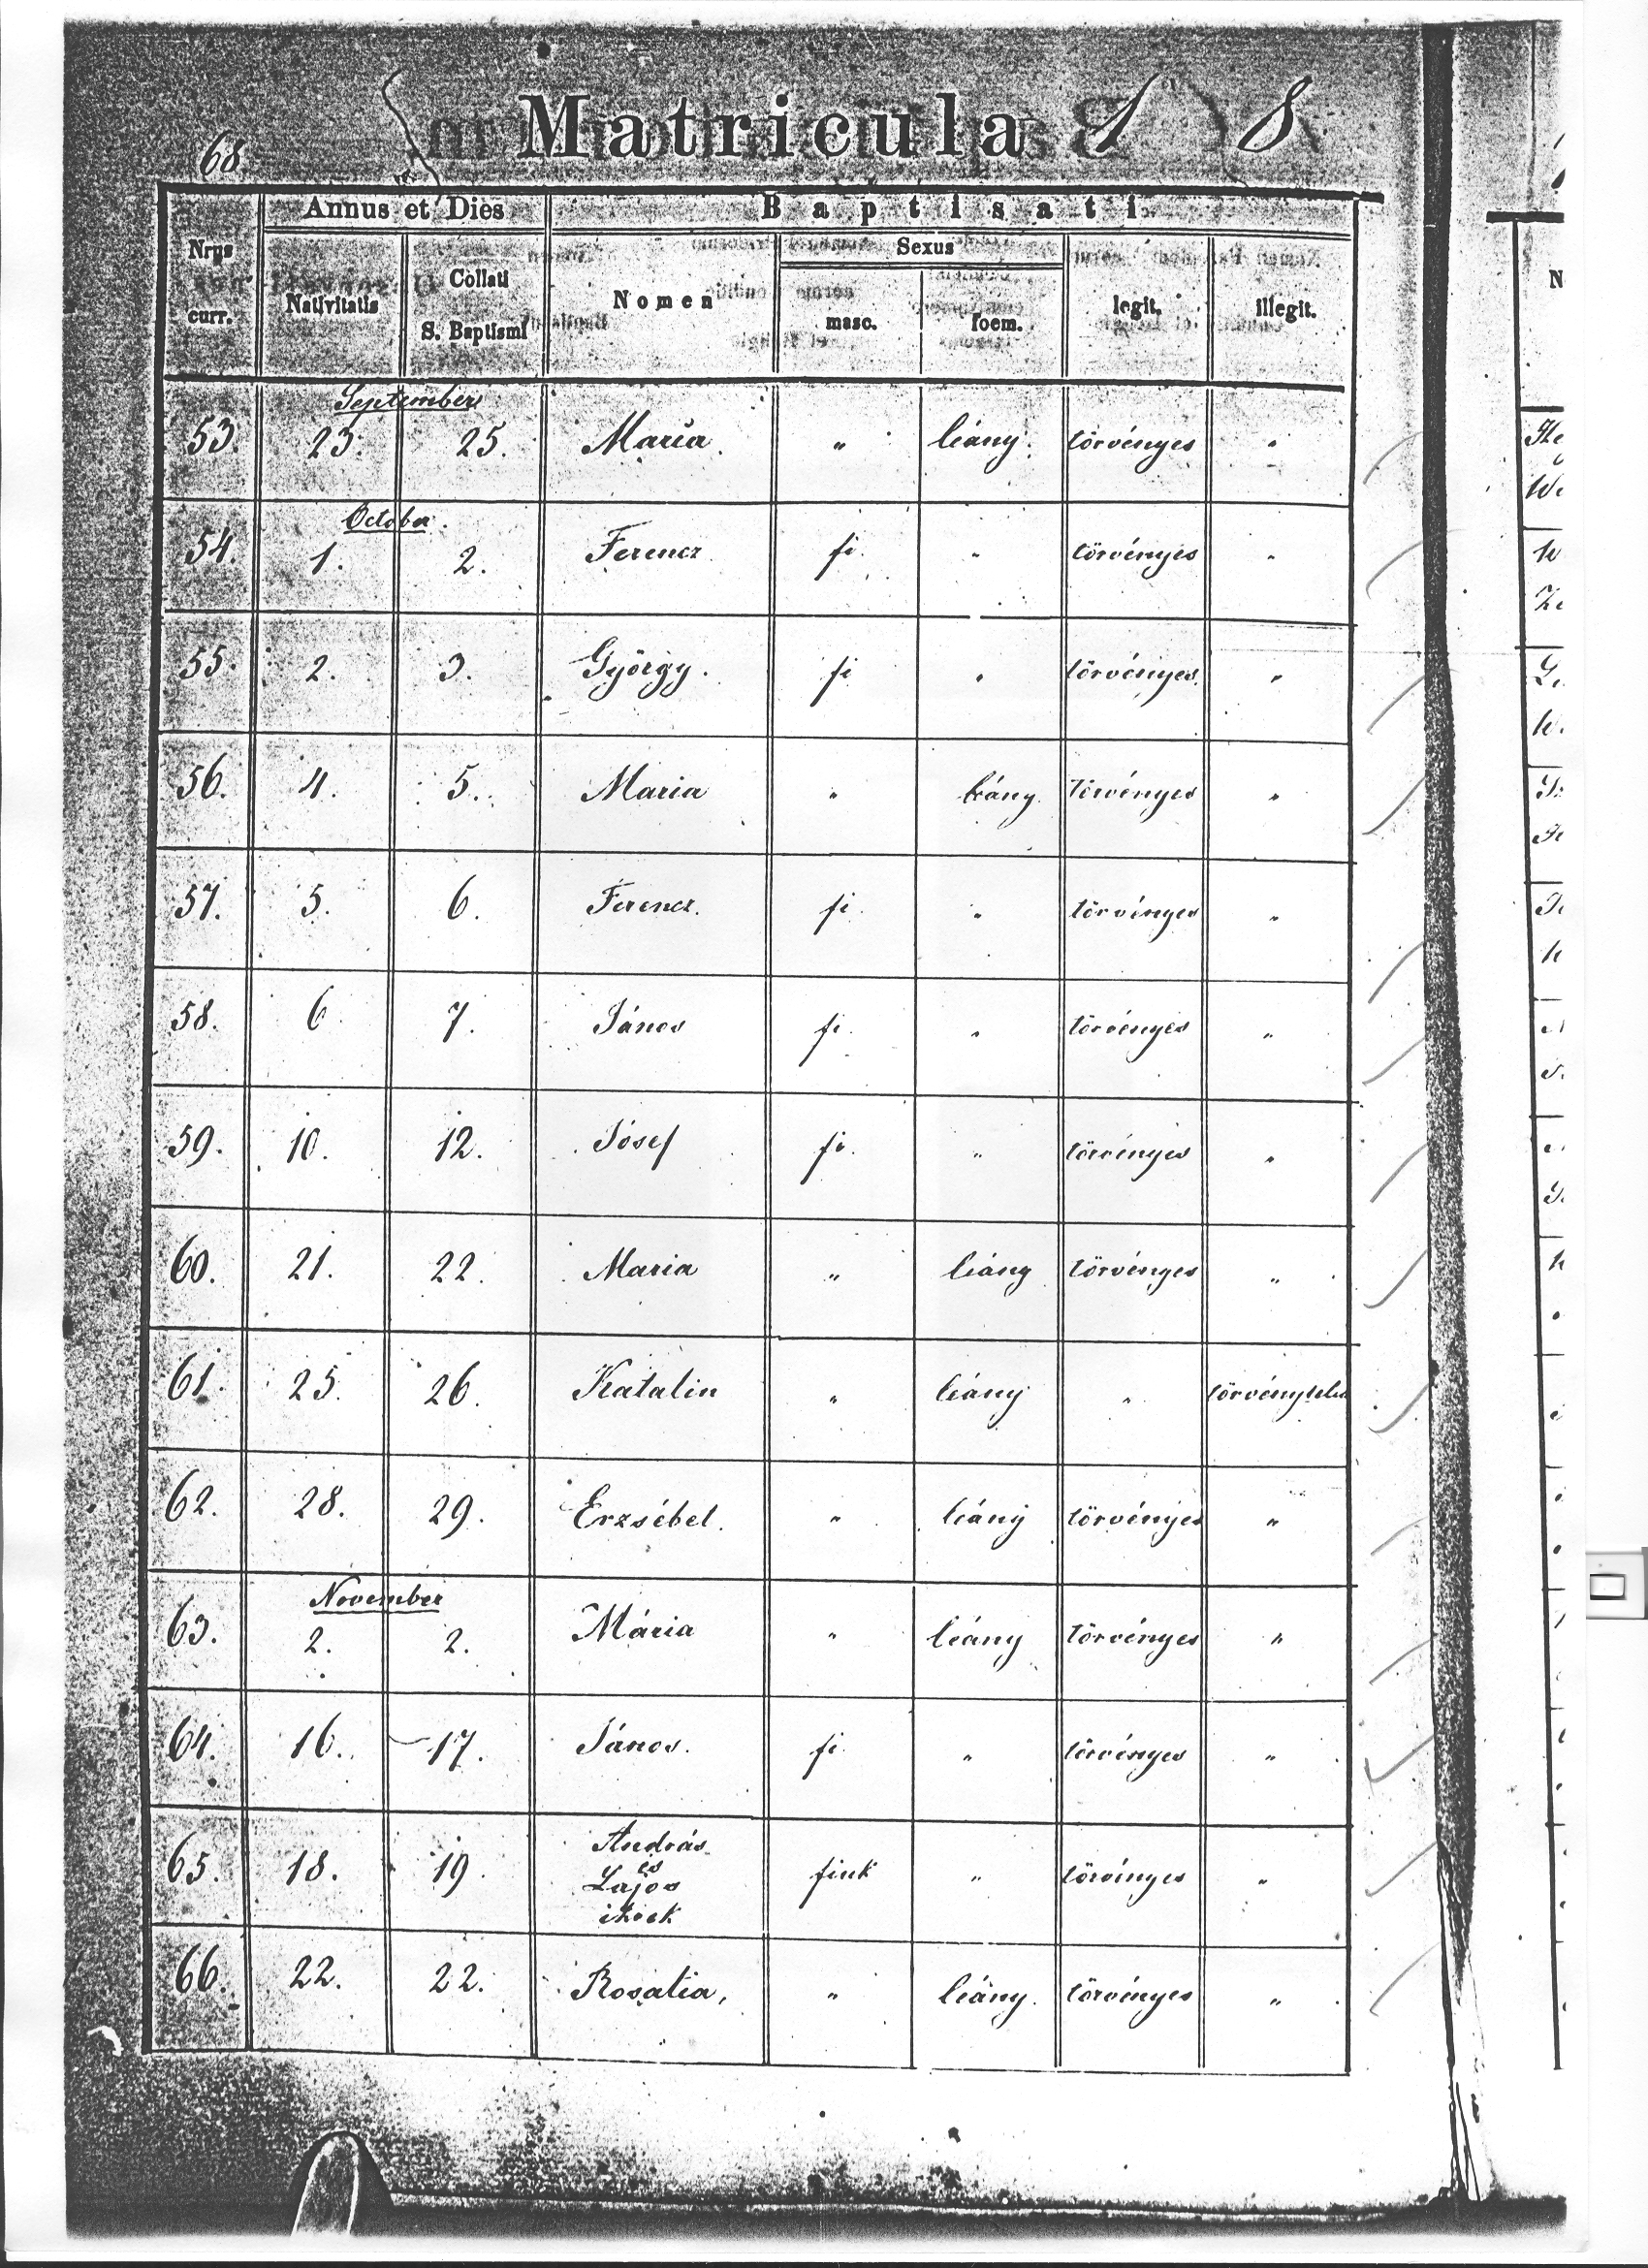 68.
Matricula 1 8
Annus et Dies Baptisati
Nrus curr. Nativitatis Collati S. Baptismi Nomen Sexus masc. foem. legit. illegit.
September
53. 23. 25. Maria. " leány. törvényes "
October.
54. 1. 2. Ferencz fi. " törvényes "
55. 2. 3. György. fi " törvényes "
56. 4. 5. Maria " leány. törvényes "
57. 5. 6. Ferencz. fi. " törvényes "
58. 6. 7. János fi. " törvényes "
59. 10. 12. Jósef fi. " törvényes "
60. 21. 22. Maria " leány törvényes "
61. 25. 26. Katalin " leány "
62. 28. 29. Erzsébet. " leány törvényes "
November
63. 2. 2. Mária " leány törvényes "
64. 16. 17. János. fi. " törvényes "
65. 18. 19. András fiuk " törvényes "
és
Lajos
ikrek
66. 22. 22. Rosalia, " leány. törvényes "